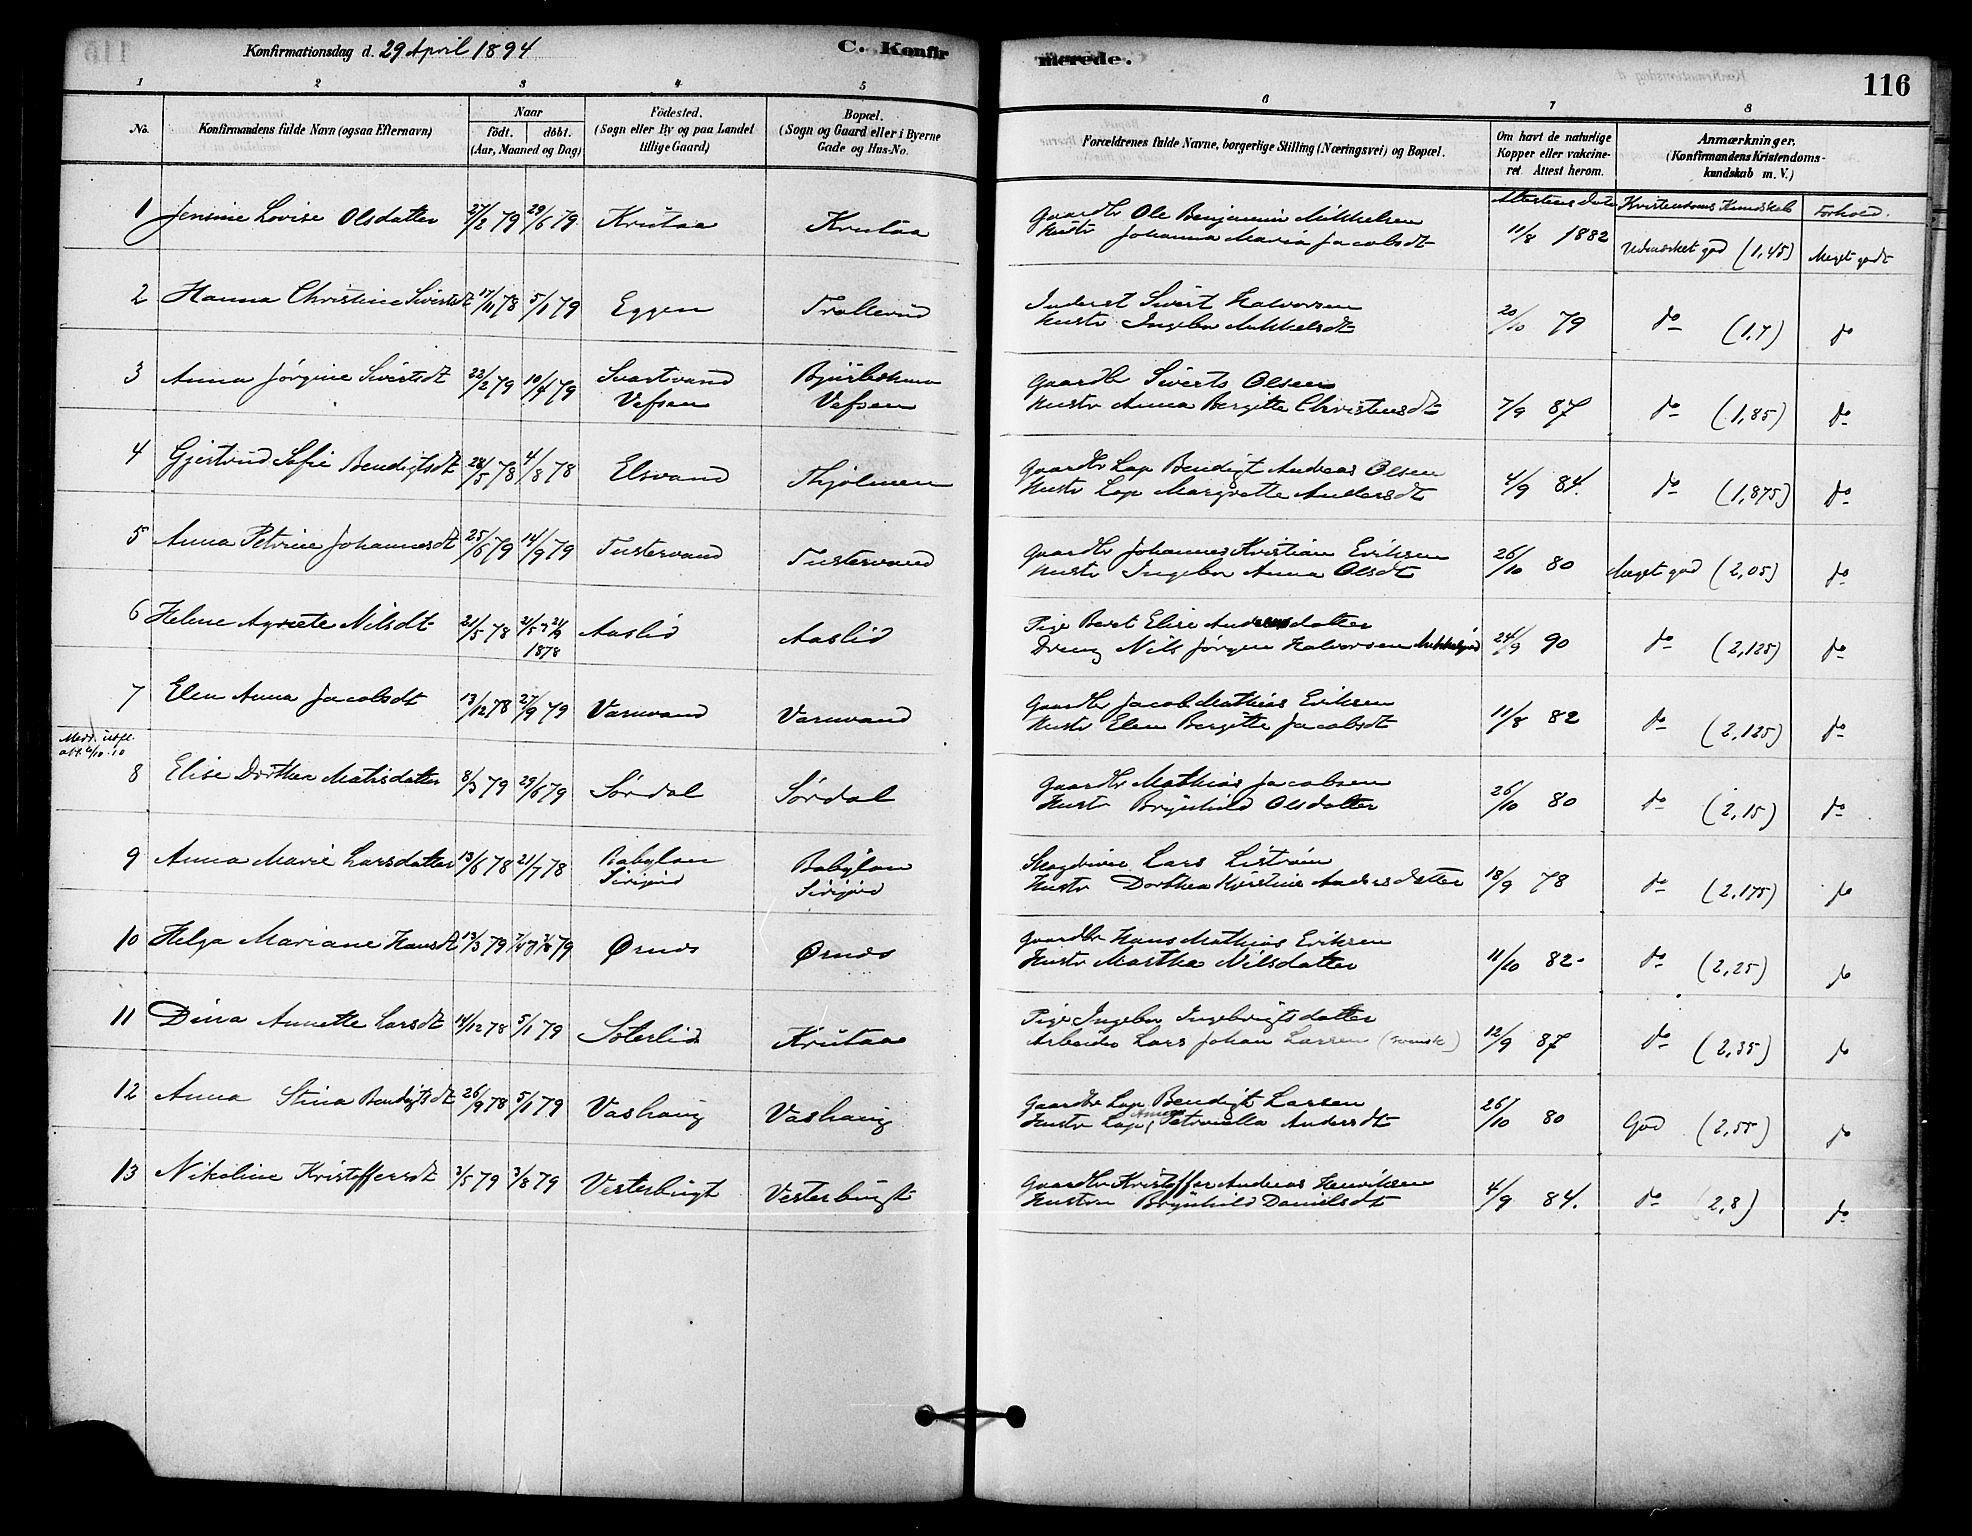 Konfirmationsdag d. 29 April 1894
C. Konfirmerede.
116
1 2 3 4 5 6 7 8
No.
Konfirmandens fulde Navn (ogsaa Efternavn)
Naar
født. døbt.
(Aar, Maaned og Dag)
Fødested.
(Sogn eller By og paa Landet
tillige Gaard)
Bopæl.
(Sogn og Gaard eller i Byerne
Gade og Hus-No.
Forældrenes fulde Navne, borgerlige Stilling (Næringsvei) og Bopæl.
Om havt de naturlige
Kopper eller vakcine-
ret. Attest herom.
Anmærkninger.
(Konfirmandens Kristendoms-
kundskab m. V.)
Attestens Dato Kristendoms Kundskab Forhold.
1 Jensine Lovise Olsdatter 27/2 79 29/6 79 Krutaa Krutaa Gaardbr Ole Benjamin Mikkelsen 11/8 1882 Udmærket god (1,45) Meget godt
Hustr Johanna Maria Jacobsdt
2 Hanna Christine Sivertsdt 17/11 78 5/1 79 Eggen Trollerud Inderst Sivert Halvorsen 20/10 79 do (1,7) do
Hustr Ingebor Mikkelsdt
3 Anna Jørgine Sivertsdt 22/2 79 10/4 79 Svartvand Gaardbr Siverts Olsen 7/9 87 do (1,85) do
Vefsen Vefsen Hustr Anna Bergitte Christensdt
4 Gjertrud Sofie Bendigtsdt 28/5 78 4/8 78 Elsvand Thjolmen Gaardbr Lap Bendigt Andreas Olsen 4/9 84. do (1,875) do
Hustr Lap Margrette Andersdt
5 Anna Petrine Johannesdt 25/6 79 14/9 79 Tustervand Tustervand Gaardbr Johannes Kristian Eriksen 26/10 80 Meget god (2,05) do
Hustr Ingebor Anna Olsdt
6 Helene Agnete Nilsdt 21/5 78 1878 Aaslid Aaslid Pige Beret Elise Andersdatter 24/9 90 do (2,125) do
Dreng Nils Jørgen Halvorsen
7 Elen Anna Jacobsdt 13/12 78 27/9 79 Varnvand Varnvand Gaardbr Jacob Mathias Eriksen 11/8 82 do (2,125) do
Hustr Elen Bergitte Jacobsdt
Medd. utfl.
att. 6/10.10
8 Elise Dorthea Matisdatter 8/3 79 29/6 79 Sørdal Sørdal Gaardbr Mathias Jacobsen 26/10 80 do (2,15) do
Hustr Brynhild Olsdatter
9 Anna Marie Larsdatter 13/6 78 21/7 78 Babylon Babylon Lars Liström 18/9 78 do (2,175) do
Sirijord Sirijord Hustr Dorthea Kirstine Andersdatter
10 Helga Mariane Hansdt 13/3 79 Ørnes Ørnes Gaardbr Hans Mathias Eriksen 11/10 82. do (2,25) do
Hustr Martha Nilsdatter
11 Dina Annette Larsdt 14/12 78 5/1 79 Soterlid Krutaa Pige Ingebor Ingebrigtsdatter 12/9 87 do (2,35) do
Arbeider Lars Johan Larsen (svensk)
12 Anna Stina Bendigtsdt 26/9 78 5/1 79 Vashaug Vashaug Gaardbr Lap Bendigt Larsen 26/10 80 God (2,55) do
Hustr Lap, Petronella Andersdt
13 Nikoline Kristoffersdt 3/5 79 3/8 79 Vesterbugt Vesterbugt Gaardbr Kristoffer Andreas Henriksen 4/9 84. do (2,8) do
Hustru Brynhild Danielsdt